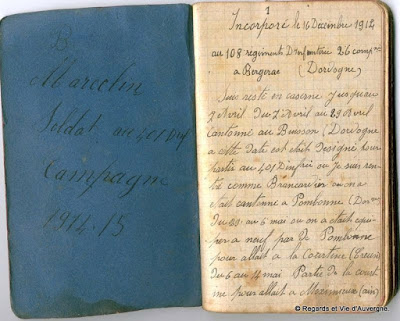 Marcelin
Soldat au 401 Inf
Campagne
1914-15
1
Incorporé le 16 Decembre 1914
au 108 regiments D'infanterie 26 comp
a Bergerac (Dorgogne)
Suis resté en caserne Jusquau
2 Avril du 2 Avril au 29 Avril
Cantonné au Buisson (Dordogne
a cette date est était designé pour
partir au 401 Dinfrie ou Je suis ren
tré comme Brancardier ou on a
était cantonné a Pombonne (Dor
du au 6 mai ou on a était equi
per a neuf par de Pombonne
pour allait a la Courtine (Creuse)
du 6 au mai Parte de la court
ine pour allait a Meximieux (ain)
© Regards et Vie d'Auvergne.